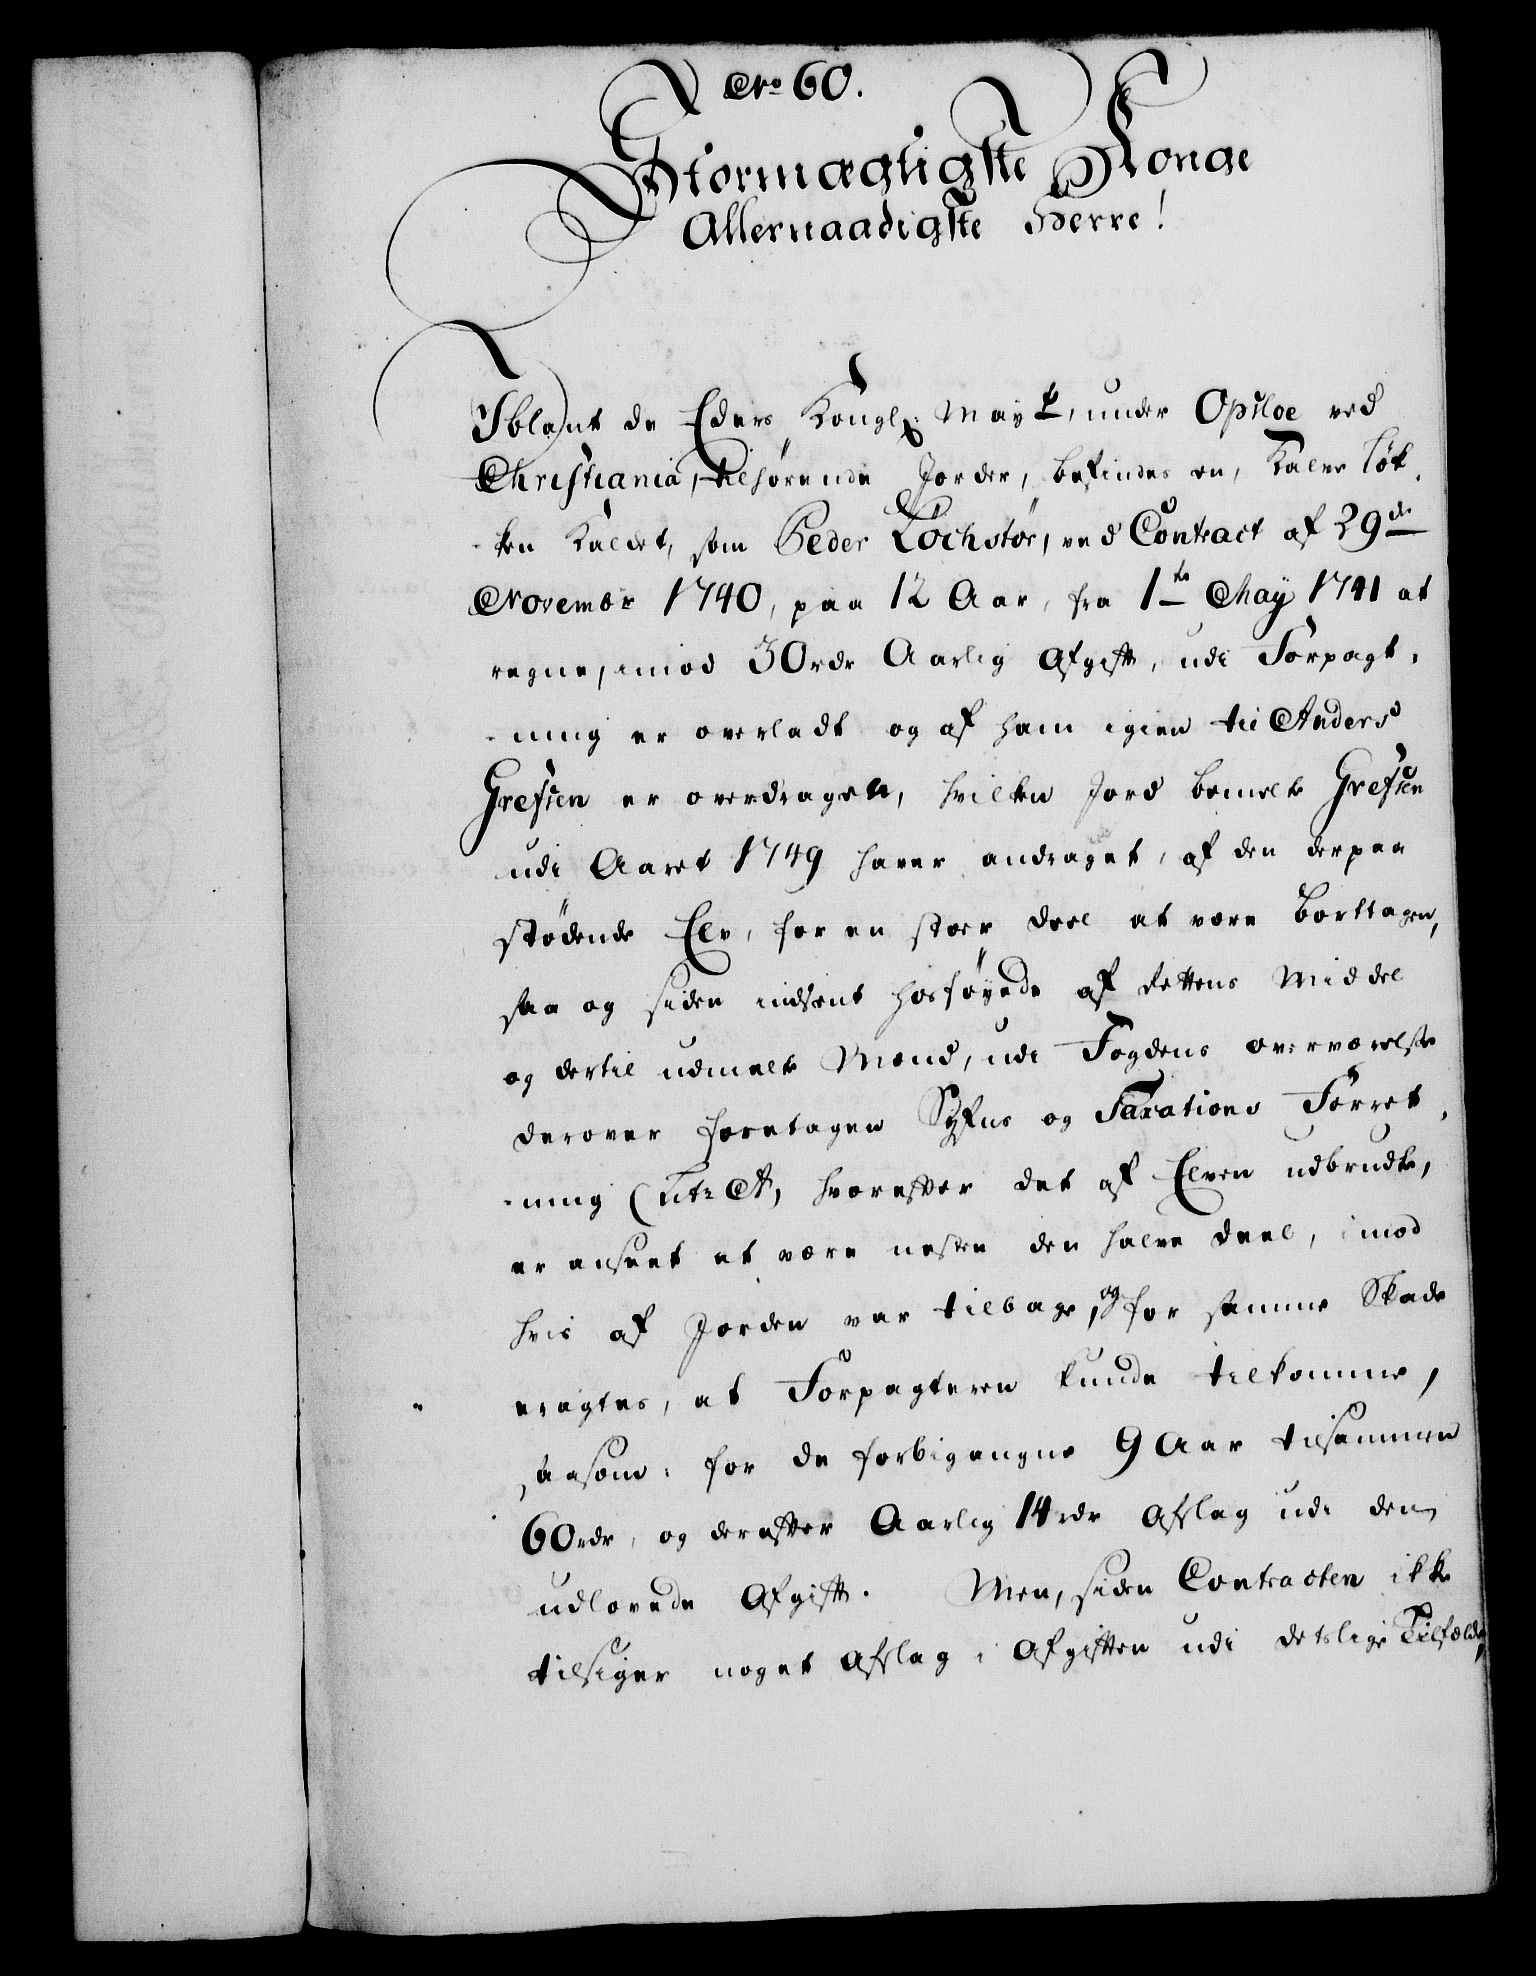 No 60.
Stormægtigste Konge
Allernaadigste Herre!
Iblant de Eders Kongl: May:t, under Opsloe ved
Christiania, tilhørende Jorder, befindes en, Kalve Løk-
-ken kaldet, som Peder Löchstör, ved Contract af 29de
November 1740, paa 12 Aar, fra 1te May 1741 at
regne, imod 30 rdr Aarlig Afgift, udi Forpagt-
-ning er overladt og af ham igien til Anders
Grefsen er overdragen, hvilken Jord bemelte Grefsen
udi Aaret 1749 haver andraget, af den derpaa
stødende Elv, for en stoer deel at være borttagen,
saa og siden indsent hosføyede af Rettens Middel
og dertil udmelte Mænd, udi Fogdens overværelse
derover foretagen Syfns og Taxations Forret-
-ning (Litr. A, hvorefter det af Elven udbrudte,
er anseet at være næsten den halve deel, imod
hvis af Jorden var tilbage, og for samme Skade
eragtes, at Forpagteren kunde tilkomme,
saasom: for de forbigangne 9 Aar tilsammen
60 rdr, og derefter Aarlig 14 rdr Afslag udi den
udlovede Afgift. Men, siden Contracten ikke
tilsiger noget Afslag i Afgiften udi deslige Tilfælde,